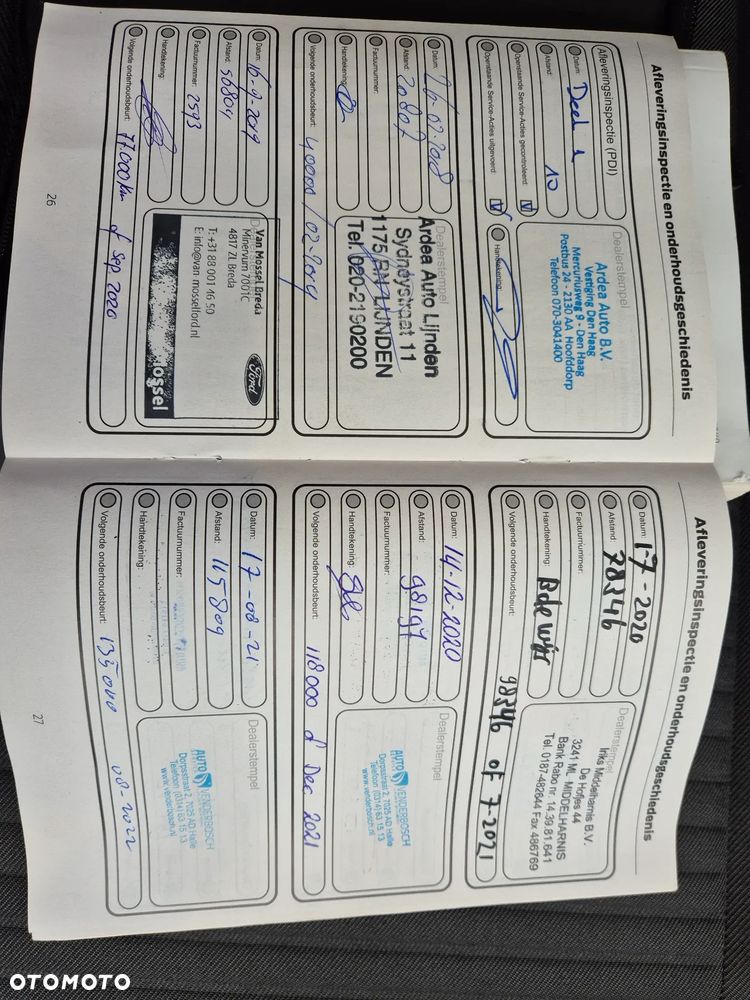 Afleveringsinspectie en onderhoudsgeschiedenis
Afleveringsinspectie (PDI)
Datum: Deel 1
Afstand: 10
Openstaande Service-Acties gecontroleerd: V
Openstaande Service-Acties uitgevoerd: V
Handtekening:
Dealerstempel
Ardea Auto B.V.
Vestiging Den Haag
Mercuriusweg 9 - Den Haag
Postbus 24 - 2130 AA Hoofddorp
Telefoon 070-3041400
Datum: 26-02-2018
Afstand: 20807
Factuurnummer:
Handtekening:
Volgende onderhoudsbeurt: 40000 / 02-2019
Dealerstempel
Ardea Auto Lijnden
Sydneystraat 11
1175 RN LIJNDEN
Tel. 020-2190200
Datum: 16-9-2019
Afstand: 56804
Factuurnummer: 2593
Handtekening:
Volgende onderhoudsbeurt: 77.000 km of Sep 2020
Van Mossel Breda
Minervum 7001C
4817 ZL Breda
T: +31 88 001 46 50
E: info@van mosselford.nl
Ford
ossel
26
Afleveringsinspectie en onderhoudsgeschiedenis
Datum: 1-7-2020
Afstand: 78346
Factuurnummer:
Handtekening:
Volgende onderhoudsbeurt: 98346 of 7-2021
Dealerstempel
Inks Middelharnis B.V.
De Hofjes 44
3241 ML MIDDELHARNIS
Bank Rabo nr. 14.39.81.641
Tel. 0187-482644 Fax 486769
Datum: 14-12-2020
Afstand: 98197
Factuurnummer:
Handtekening:
Volgende onderhoudsbeurt: 118000 of Dec 2021
Dealerstempel
AUTO VENDERBOSCH
Dorpsstraat 2, 7025 AD Halle
Telefoon (0314) 63 15 13
www.venderbosch.nl
Datum: 17-08-21
Afstand: 115809
Factuurnummer:
Handtekening:
Volgende onderhoudsbeurt: 135000 08-2022
Dealerstempel
AUTO VENDERBOSCH
Dorpsstraat 2, 7025 AD Halle
Telefoon (0314) 63 15 13
www.venderbosch.nl
27
OTOMOTO